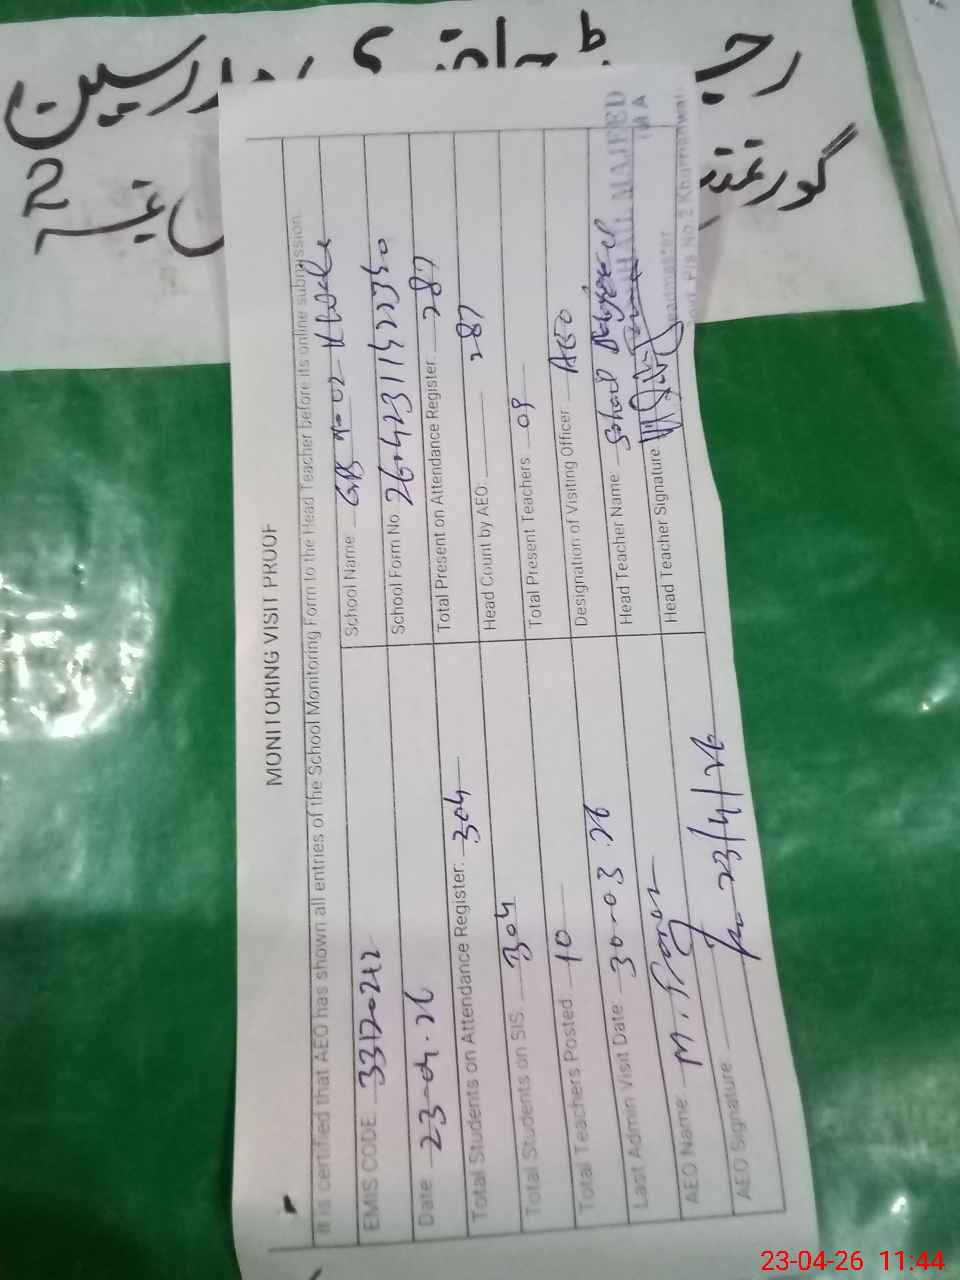 رجسٹر حاضری مدرسین
گورنمنٹ
2
MONITORING VISIT PROOF
It is certified that AEO has shown all entries of the School Monitoring Form to the Head Teacher before its online submission
EMIS CODE: 33120212 School Name:
Date 23-04-26 School Form No
Total Students on Attendance Register: 304 Total Present on Attendance Register: 287
Total Students on SIS: 304 Head Count by AEO: 287
Total Teachers Posted: 10 Total Present Teachers: 09
Last Admin Visit Date: 30-03-26 Designation of Visiting Officer: AEO
AEO Name: M. Head Teacher Name: Sohail
AEO Signature 23/4/26 Head Teacher Signature:
MAJEED
Headmaster
P/S No.2
23-04-26 11:44